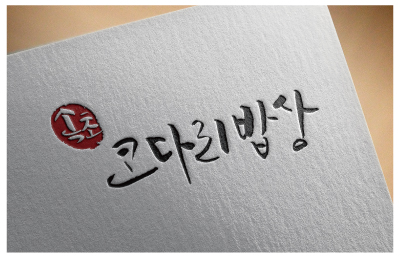 속초 코다리밥상